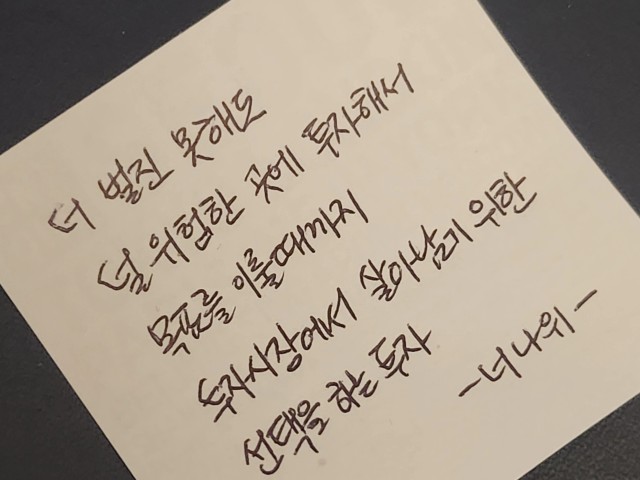 더 벌진 못해도
덜 위험한 곳에 투자해서
목표를 이룰때까지
투자시장에서 살아남기 위한
선택을 하는 투자
-너나위-